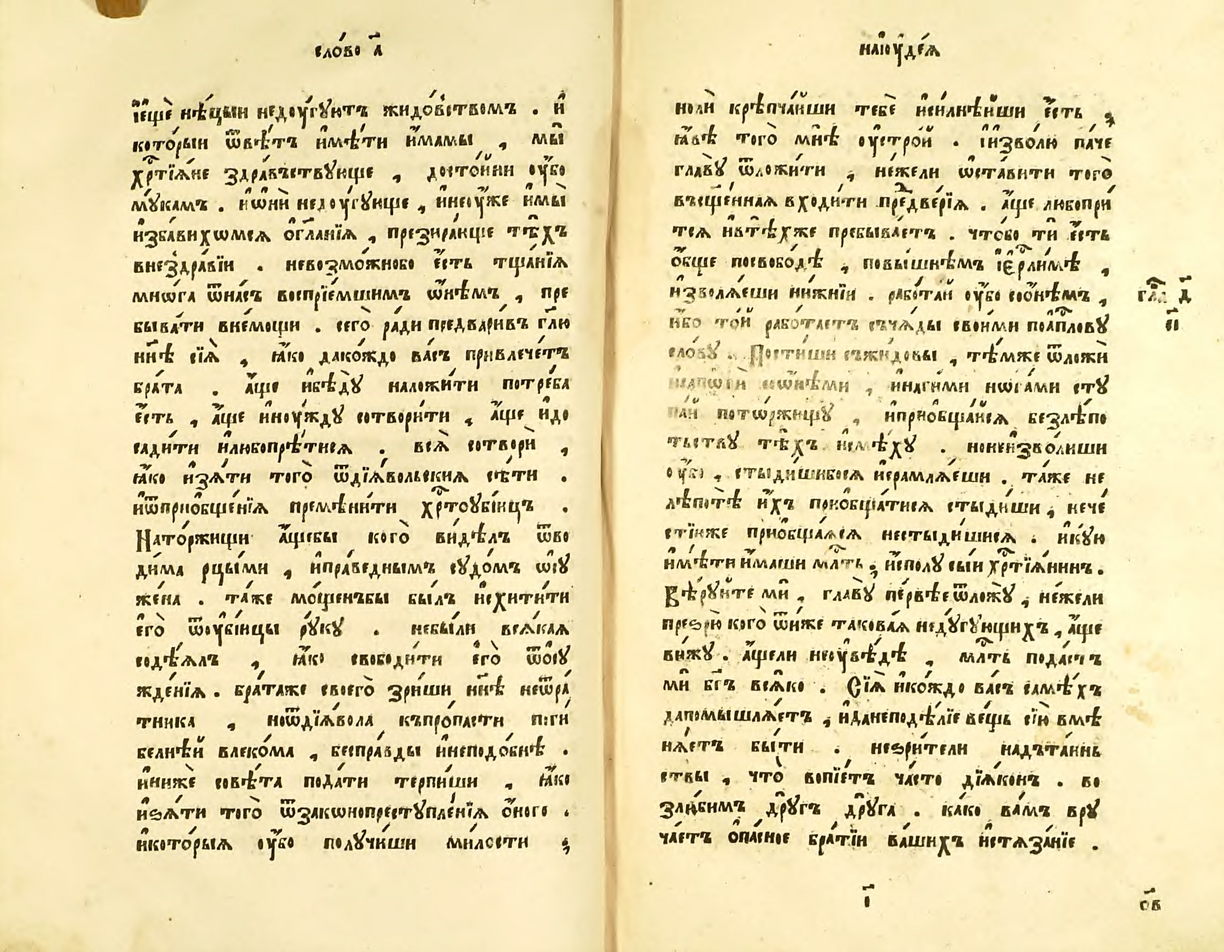 сло́во а҃
їе́щѐ нѣ́цыи недоу́гꙋютъ жидо́вствомъ . и҆
кото́рыи ѿвѣ́тъ и҆мѣ́ти и҆́мамы , мы̀
хрⷭ҇тїѧ́не здра́въствꙋюще , досто́йни оу҆́бо
мꙋ́камъ . и҆ѡ҆ни́ недꙋ́гꙋюще , и҆неоу҆́же и҆мы̀
и҆зба́вихѡмсѧ ѻ҆гла́нїѧ , презира́юще тѣ́хъ
внездра́вїи . невозмо́жнобо є҆́сть тща́нїѧ
мнѡ́га ѿна́съ воспрїе́мшимъ ѡ҆не́мъ , пре
быва́ти вне́мощи . сего̀ ра́ди предвари́въ гл҃ю
нн҃ѣ сїѧ̀ , ꙗ҆́ко дако́ждо ва́съ привлече́тъ
бра́та . а҆́ще и҆бѣ́дꙋ наложи́ти потре́ба
є҆́сть , а҆́ще и҆ноу́ждꙋ сотвори́ти , а҆́ще и҆до
сади́ти и҆любопрѣ́тисѧ . всѧ̀ сотворѝ ,
ꙗ҆́ко и҆зѧ́ти того̀ ѿдїѧ́вольскиѧ сѣ́ти .
и҆ѿприобще́нїѧ премѣни́ти хрⷭ҇тоубі́йцъ .
Наторжи́щи а҆́щебы кого̀ ви́дѣлъ ѿво
ди́ма рцы́ми , и҆пра́веднымъ сꙋдо́мъ ѡ҆сꙋ
же́на . та́же мо́щенъбы бы́лъ и҆схити́ти
є҆го̀ ѿоубі́йцы рꙋ́кꙋ . небы́ли всѧ́каѧ
содѣ́ѧлъ , ꙗ҆́ко свободи́ти є҆го̀ ѿѡ҆сꙋ
жде́нїѧ . бра́таже своего̀ зри́ши нн҃ѣ неѿра́
тника , ноѿдїѧ́вола къпро́пасти поги́
белнѣй влеко́ма , беспра́вды и҆неподо́бнѣ .
и҆нижѐ совѣ́та пода́ти терпи́ши , ꙗ҆́ко
и҆зѧ́ти того̀ ѿзакѡнопрестꙋпле́нїѧ ѻ҆́ного .
и҆кото́рыѧ оу҆́бо полꙋ́чиши ми́лости ;
наїоуде́ѧ
нолѝ крѣпча́йши тебѐ и҆силнѣ́йши є҆́сть ,
ꙗ҆́вѣ того̀ мнѣ̀ оу҆стро́й . і҆и҆зво́лю па́че
главꙋ̀ ѿложи́ти , не́жели ѡ҆ста́вити того̀
въсщ҃е́ннаѧ входи́ти предве́рїѧ . а҆́ще любопри́
тсѧ и҆втѣ́хже пребыва́етъ . что́бо ти є҆́сть
ѻ҆́бще посвобо́дѣ , повы́шнѣмъ і҆ерⷭ҇ли́мѣ ,
и҆зволѧ́еши ни́жнїи . рабо́тай оу҆́бо соо́нѣмъ ,
и҆́бо то́й рабо́таетъ съча́ды свои́ми поа҆пⷭ҇ловꙋ
сло́вꙋ . Пости́ши съжи́довы , тѣ́мже ѿложѝ
сѡ҆нѣ́ми , и҆наги́ми нѡга́ми стꙋ
па́й потѡржищꙋ̀ , и҆приобща́йсѧ безлѣ́по
тьствꙋ тѣ́хъ и҆смѣ́хꙋ . нонеи҆зво́лиши
оу҆́бо , стыди́шибосѧ и҆срамлѧ́еши . та́же не
лѣ́потѣ и҆́хъ приобща́тисѧ стыди́ши , нече́
стїюже приобща́ѧсѧ нестыди́шисѧ . и҆кꙋ́ю
и҆мѣ́ти и҆́маши млⷭ҇ть ; и҆спо́лꙋ сы́и хрⷭ҇тїѧ́нинъ .
Вѣ́рꙋйте мѝ , главꙋ̀ пе́рвѣе ѿложꙋ̀ , не́жели
презрю̀ кого̀ ѿни́же такова́ѧ недꙋ́гꙋющихъ , а҆́ще
ви́жꙋ . а҆́щели неоувѣ́дѣ , млⷭ҇ть пода́стъ
мѝ бг҃ъ всѧ́ко . Сїѧ̀ и҆ко́ждо ва́съ самѣ́хъ
дапомышлѧ́етъ , и҆данеподѣ́лїе ве́щь сїю̀ вмѣ
нѧ́етъ бы́ти . незри́тели надъта́инь
ствы , что̀ вопїе́тъ ча́сто дїѧ́конъ . во
злю́бимъ дрꙋ́гъ дрꙋ́га . ка́ко ва́мъ врꙋ
ча́етъ ѻ҆па́сное бра́тїи ва́шихъ и҆стѧза́нїе .
гла д҃
є҃і
і҃
ѻ҃в